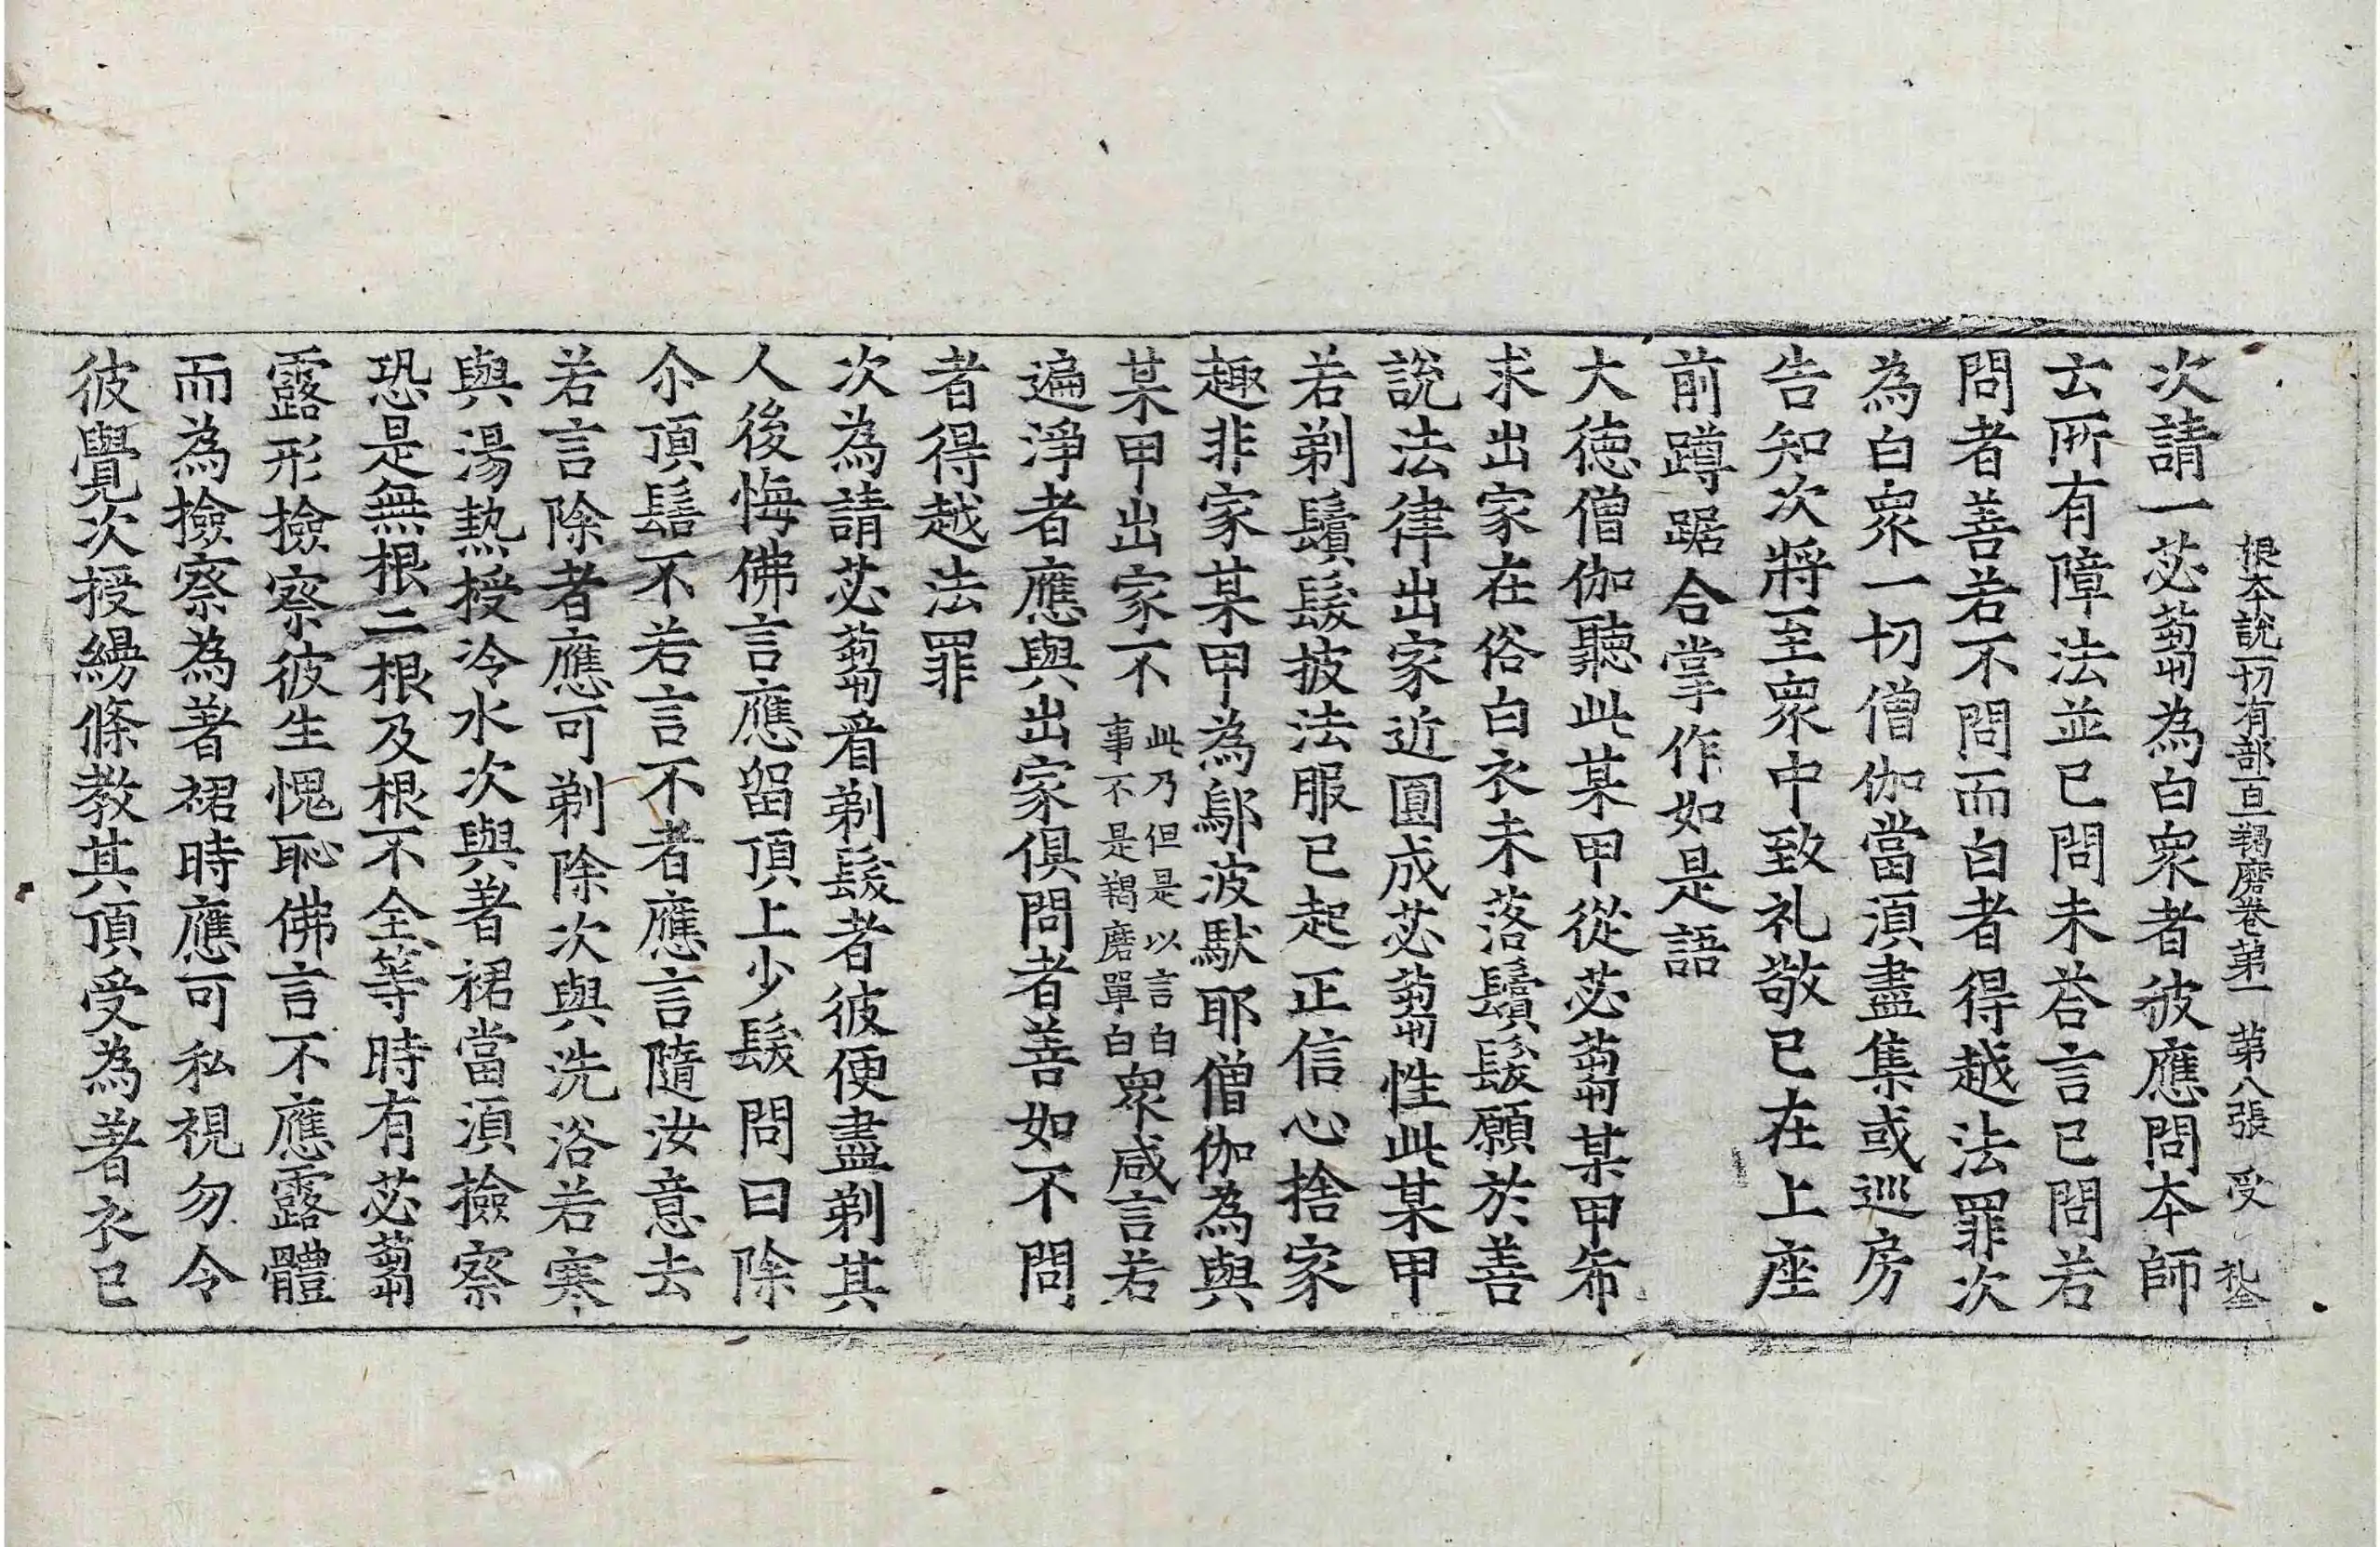 根本說一切有部百一羯磨卷第一 第八張 受
次請一苾蒭為白衆者彼應問本師
云所有障法並已問未荅言已問若
問者善若不問而白者得越法罪次
為白衆一切僧伽當湏盡集或巡房
告知次將至衆中致礼敬已在上座
前蹲踞合掌作如是語
大德僧伽聽此某甲從苾蒭某甲希
求出家在俗白衣未落鬚髮願於善
說法律出家近圓成苾蒭性此某甲
若剃鬚髮披法服已起正信心捨家
趣非家某甲為鄔波馱耶僧伽為與
某甲出家不此乃但是以言白事不是羯磨單白衆咸言若
遍淨者應與出家俱問者善如不問
者得越法罪
次為請苾蒭看剃髮者彼便盡剃其
人後悔佛言應留頂上少髮問曰除
尒頂髻不若言不者應言隨汝意去
若言除者應可剃除次與洗浴若寒
與湯熱授冷水次與著裙當湏撿察
恐是無根二根及根不全等時有苾蒭
露形撿察彼生愧恥佛言不應露體
而為撿察為著裙時應可私視勿令
彼覺次授縵條教其頂受為著衣已